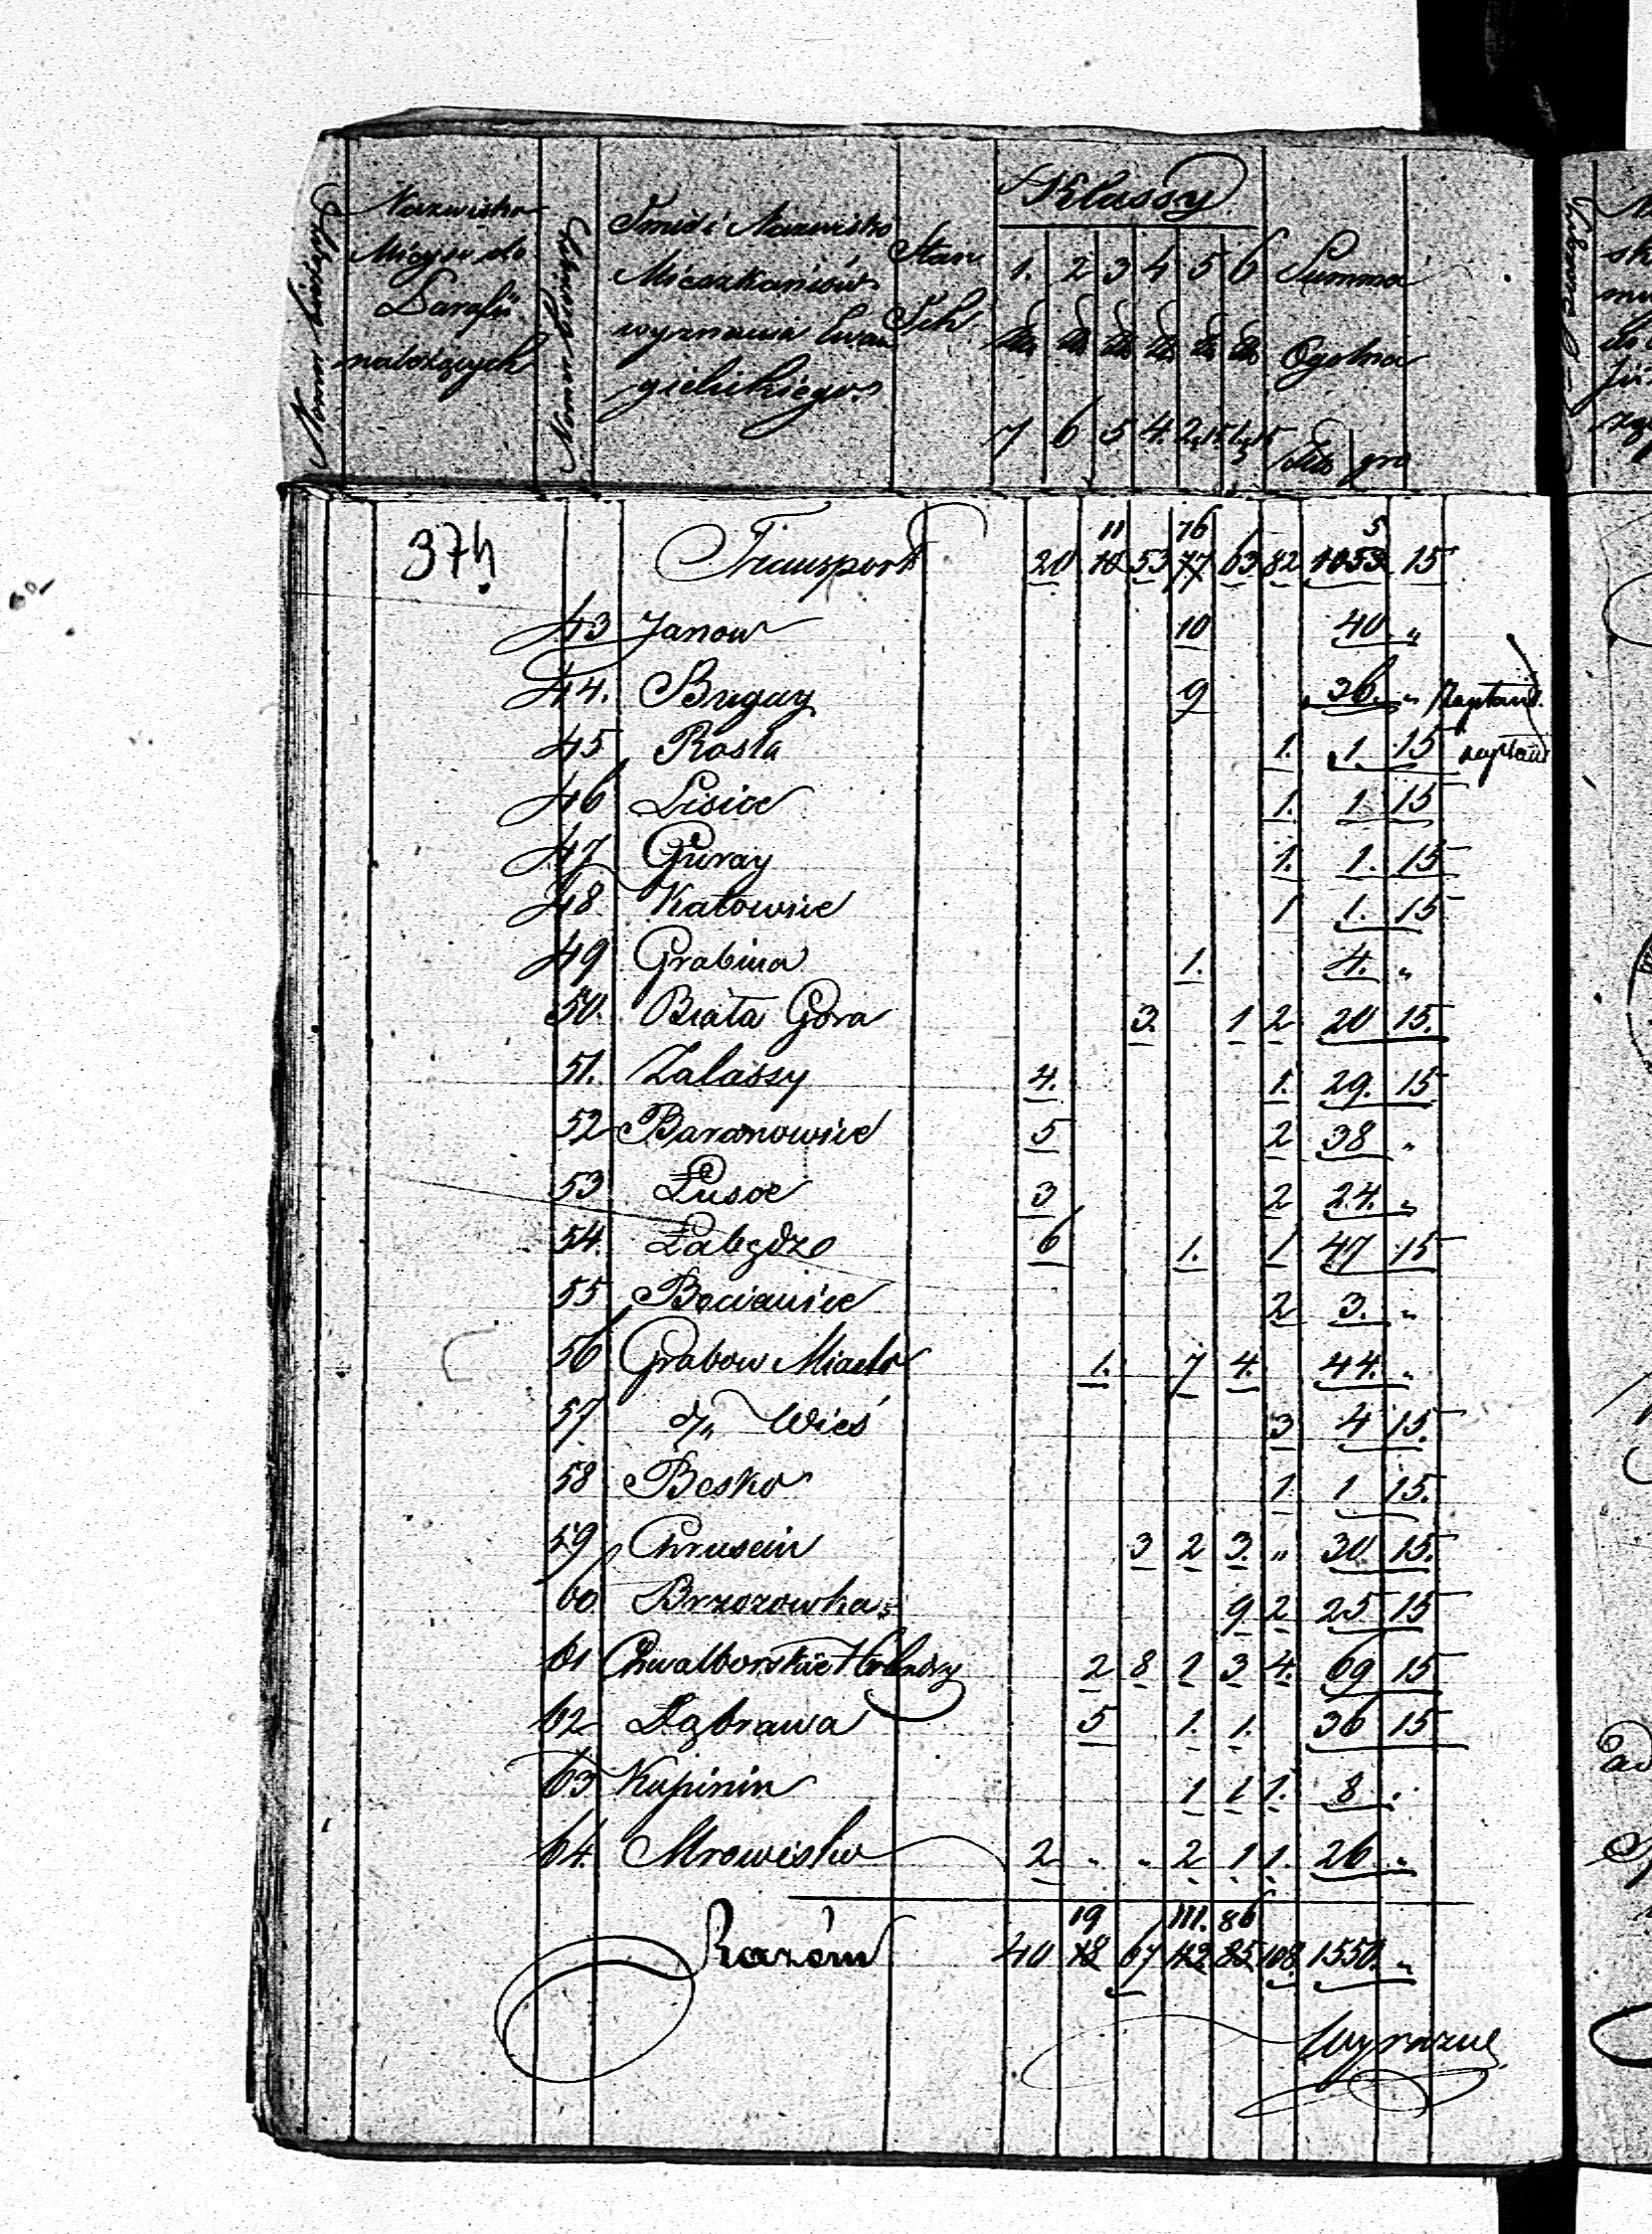 Numer bieżący
Nazwisko
Mieysc do
Parafii
należących
Numer bieżący
Imie i Nazwisko
Mieszkańców
wyznania Ewan
gielickiego
Stan
Ich
Klassy
1. 2 3 4 5 6
Summa
Ogolna
7 6 5 4. 2,15 1,15
gro
374
11 76 5
Transport 20 10 53 77 63 82 1053 15
43 Janow 10 40 "
44. Bugay 9 36. "
45 Rosla 1. 1. 15
46 Lisice 1. 1 15
47 Guray 1. 1. 15
48 Katowice 1 1. 15
49 Grabina 1. 4. "
50. Biała Góra 3. 1 2 20 15.
51. Zalassy 4. 1. 29. 15
52 Baranowice 5 2 38 "
53 Łusoe 3 2 24. "
54. Łabędze 6 1. 1 47 15
55 Bocianice 2 3. "
56 Grabow Miasto 1. 7 4. 44. "
57 d/" Wieś 3 4 15.
58 Besko 1 1 15.
59 Chruscin 3 2 3. " 30 15.
60 Brzozowka 9 2 25 15
61 Chwalborskie Holendry 2 8 1 3 4. 69 15
62 Dąbrawa 5 1. 1. 36 15
63 Kupinin 1 1 1. 8 "
64. Mrowisko 2 " " 2 1 1. 26 "
19 111. 86
Razem 40 18 67 112 85 108 1550. "